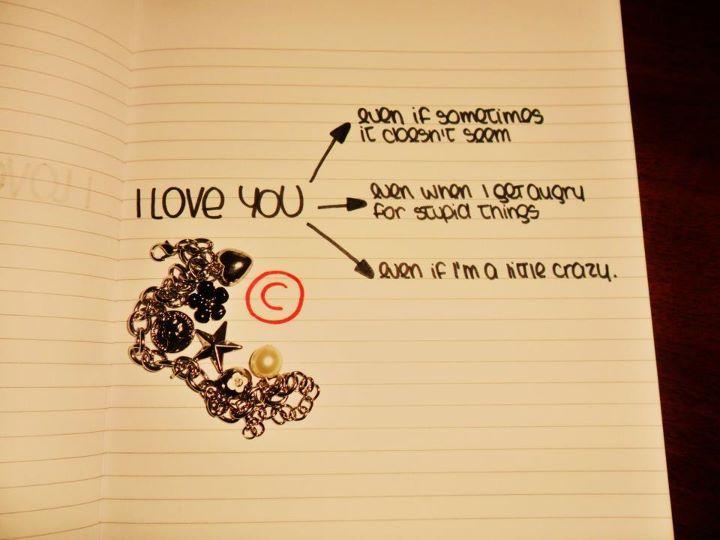 even if sometimes
it doesn't seem
I LOVE YOU
even when I get augry
for stupid things
even if I'm a little crazy.
C
I LOVE